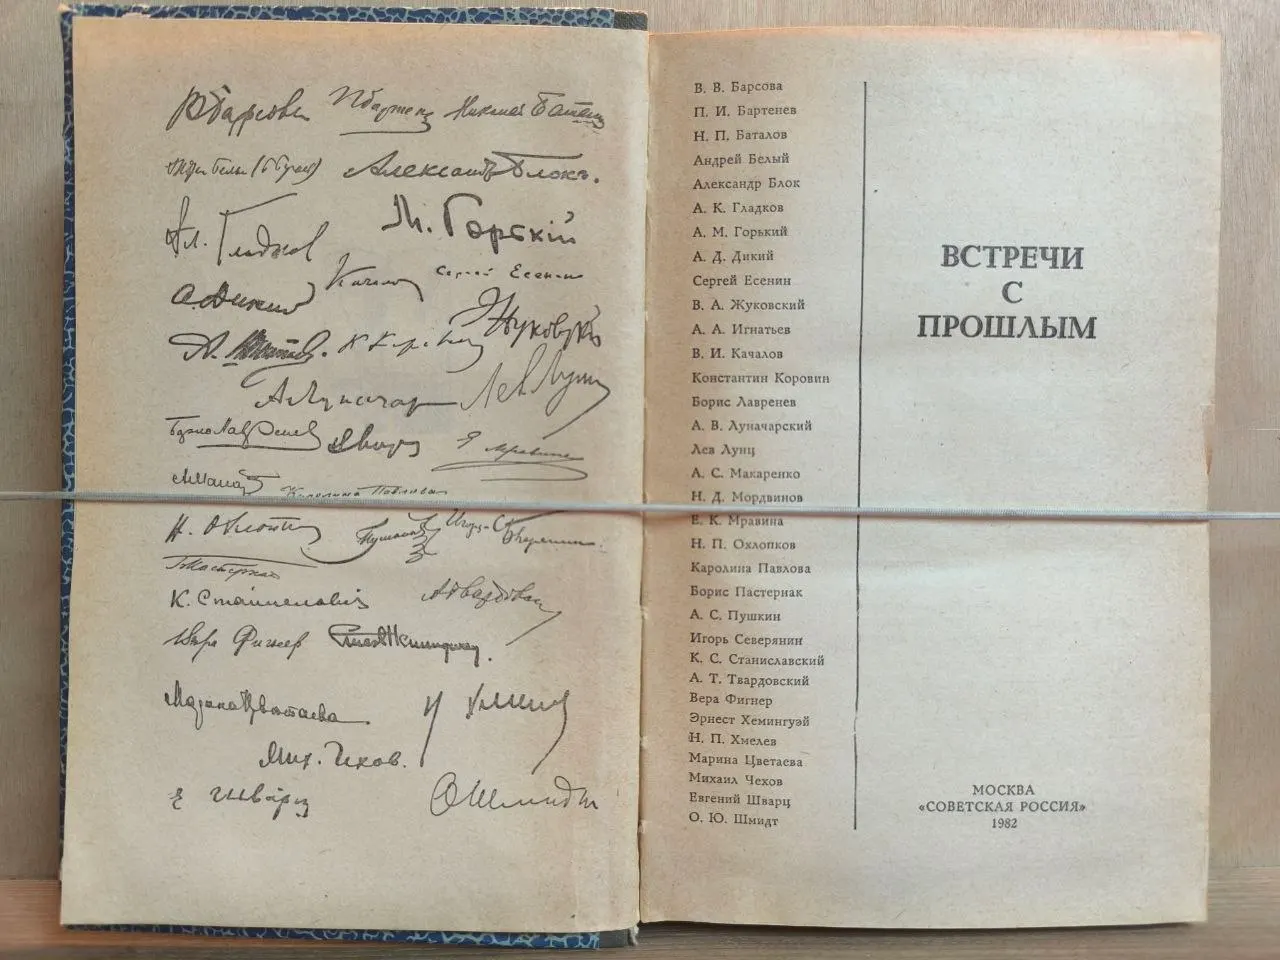 ВБарсова ПБартенев Николай Баталов
Александръ Блокъ.
Ал. Гладков
М. Горькій
А. Дикий Качалов Сергей Есенин
Жуковскій
К Коровин
АЛуначарский Лев Лунц
Борис Лавренев
Е Мравина
Каролина Павлова
Н. Охлопков Пушкинъ Игорь-Северянинъ.
К. Станиславскій АТвардовский
Вера Фигнер
Марина Цветаева Н Хмелев
Мих. Чехов.
Е Шварц ОШмидт
В. В. Барсова
П. И. Бартенев
Н. П. Баталов
Андрей Белый
Александр Блок
А. К. Гладков
А. М. Горький
А. Д. Дикий
Сергей Есенин
В. А. Жуковский
А. А. Игнатьев
В. И. Качалов
Константин Коровин
Борис Лавренев
А. В. Луначарский
Лев Лунц
А. С. Макаренко
Н. Д. Мордвинов
Е. К. Мравина
Н. П. Охлопков
Каролина Павлова
Борис Пастернак
А. С. Пушкин
Игорь Северянин
К. С. Станиславский
А. Т. Твардовский
Вера Фигнер
Эрнест Хемингуэй
Н. П. Хмелев
Марина Цветаева
Михаил Чехов
Евгений Шварц
О. Ю. Шмидт
ВСТРЕЧИ
С
ПРОШЛЫМ
МОСКВА
«СОВЕТСКАЯ РОССИЯ»
1982